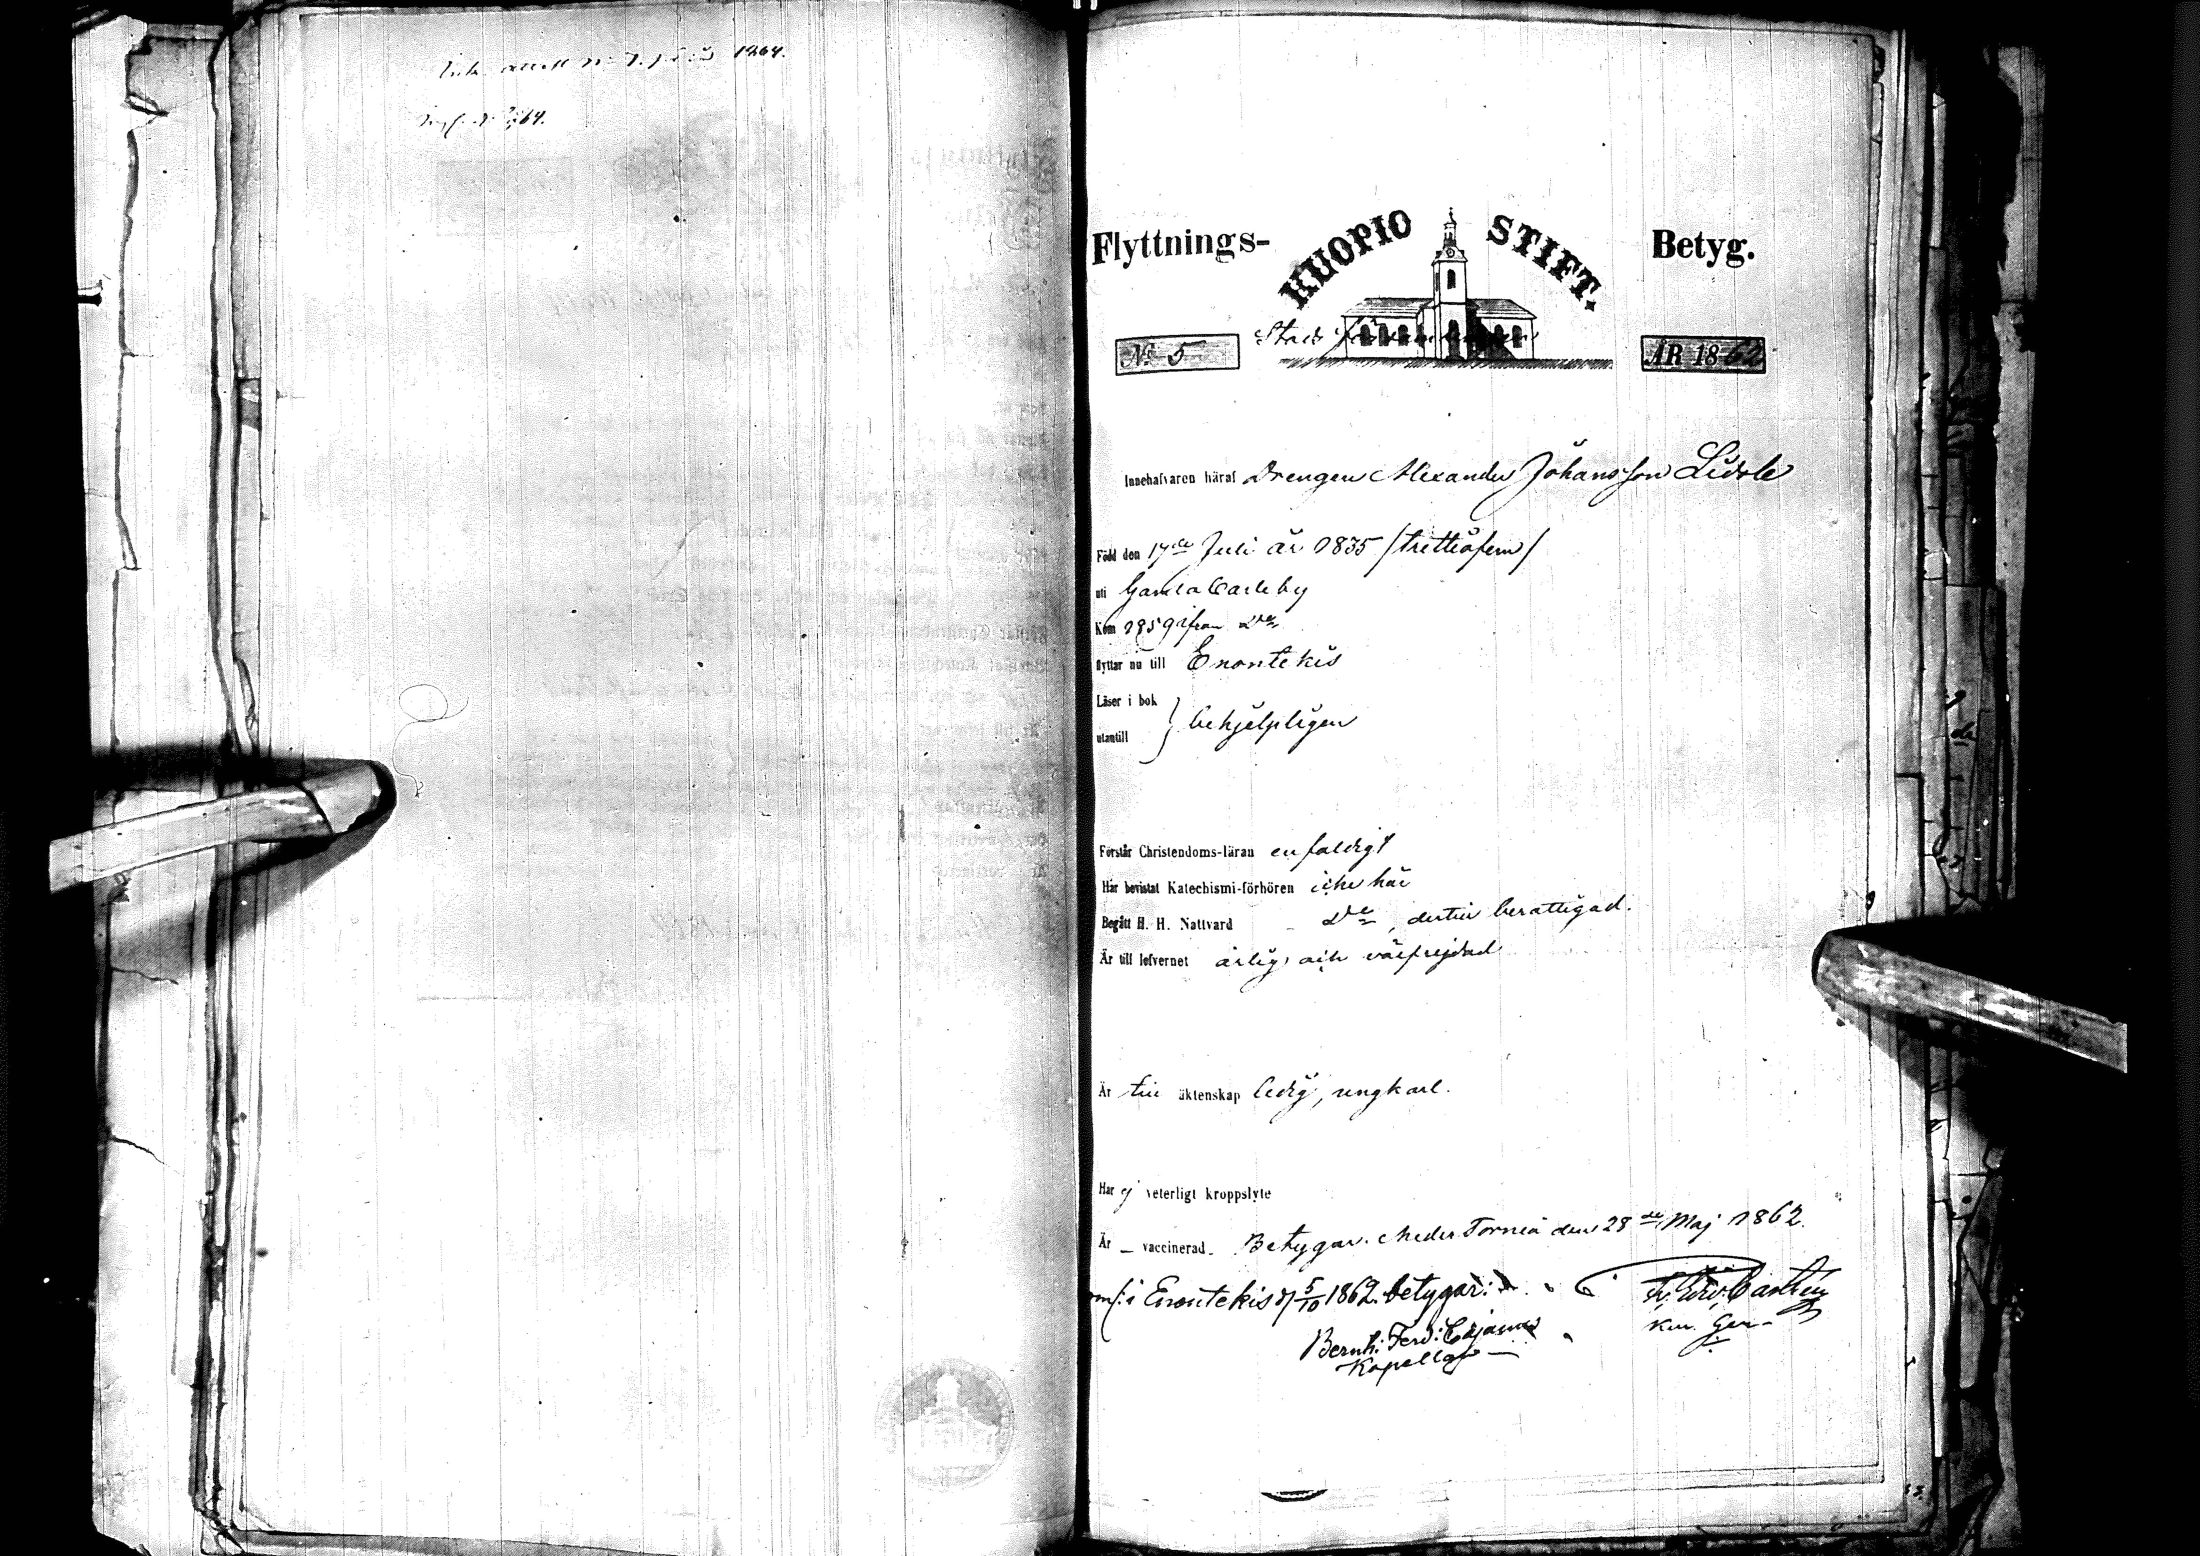 1864.
Flyttnings- KUOPIO STIFT. Betyg.
N:o 5
ÅR 1862
Innehafvaren häraf Drengen Alexander Johansson
Född den 17de Juli år 1835 /trettiofem/
uti Gamla Carleby
Kom 1859 ifrån Do
flyttar nu till Enontekis
Läser i bok
utantill } behjelpligen
Förstår Christendoms-läran enfaldigt
Har bevistat Katechismi-förhören icke här
Begått H. H. Nattvard Do, dertill berättigad.
Är till lefvernet ärlig och välfrejdad
Är till äktenskap ledig, ungkarl.
Har ej veterligt kroppslyte
Är _ vaccinerad. Betygar. Neder Torneå den 28de Maj 1862.
i Enontekis d 5/10 1862. betygar:
Bernh: Ferd: Cajanus
Kapellan